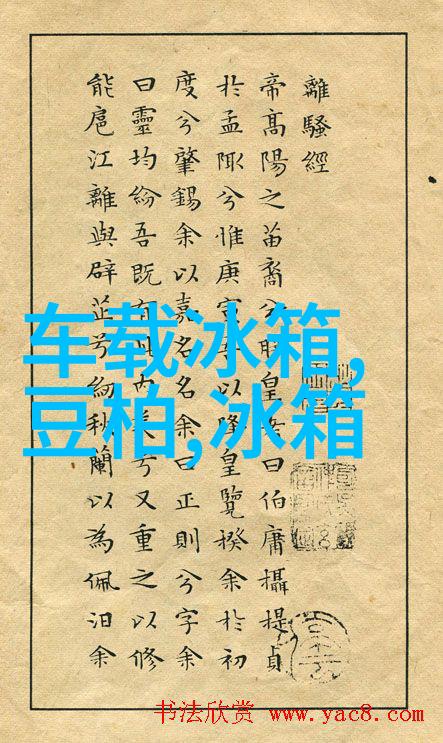 離騷經
帝高陽之苗裔兮朕皇考曰伯庸攝提貞
於孟陬兮惟庚寅吾以降皇覽揆余於初
度兮肇錫余以嘉名名余曰正則兮字余
曰靈均紛吾既有此內美兮又重之以修
能扈江離與辟芷兮紉秋蘭以為佩汩余
车载冰箱,
豆柏,冰箱
书法欣赏 www.yac8.com